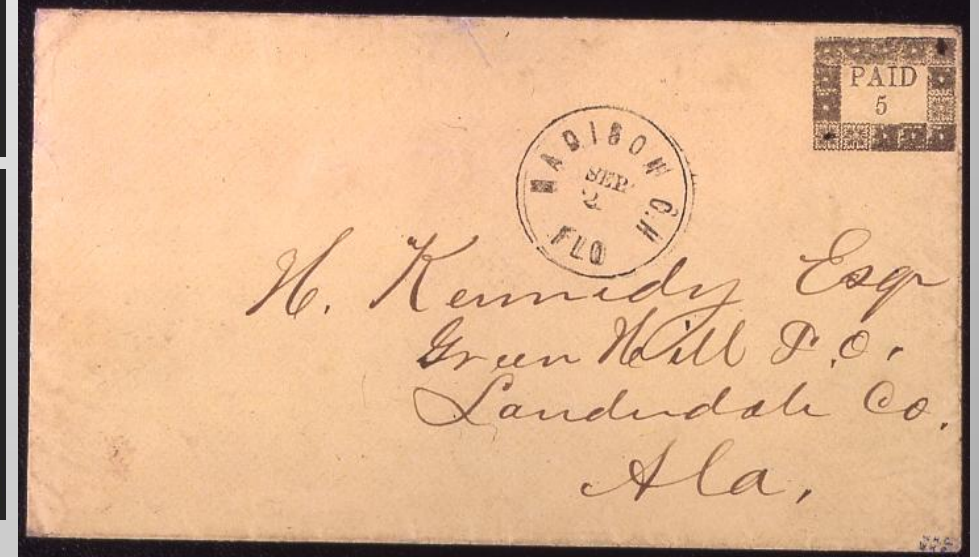 PAID
5
MADISON C.H
SEP
2
FLO
H. Kennedy Esqr
Green Hill P.O.
Lauderdale Co.
Ala.